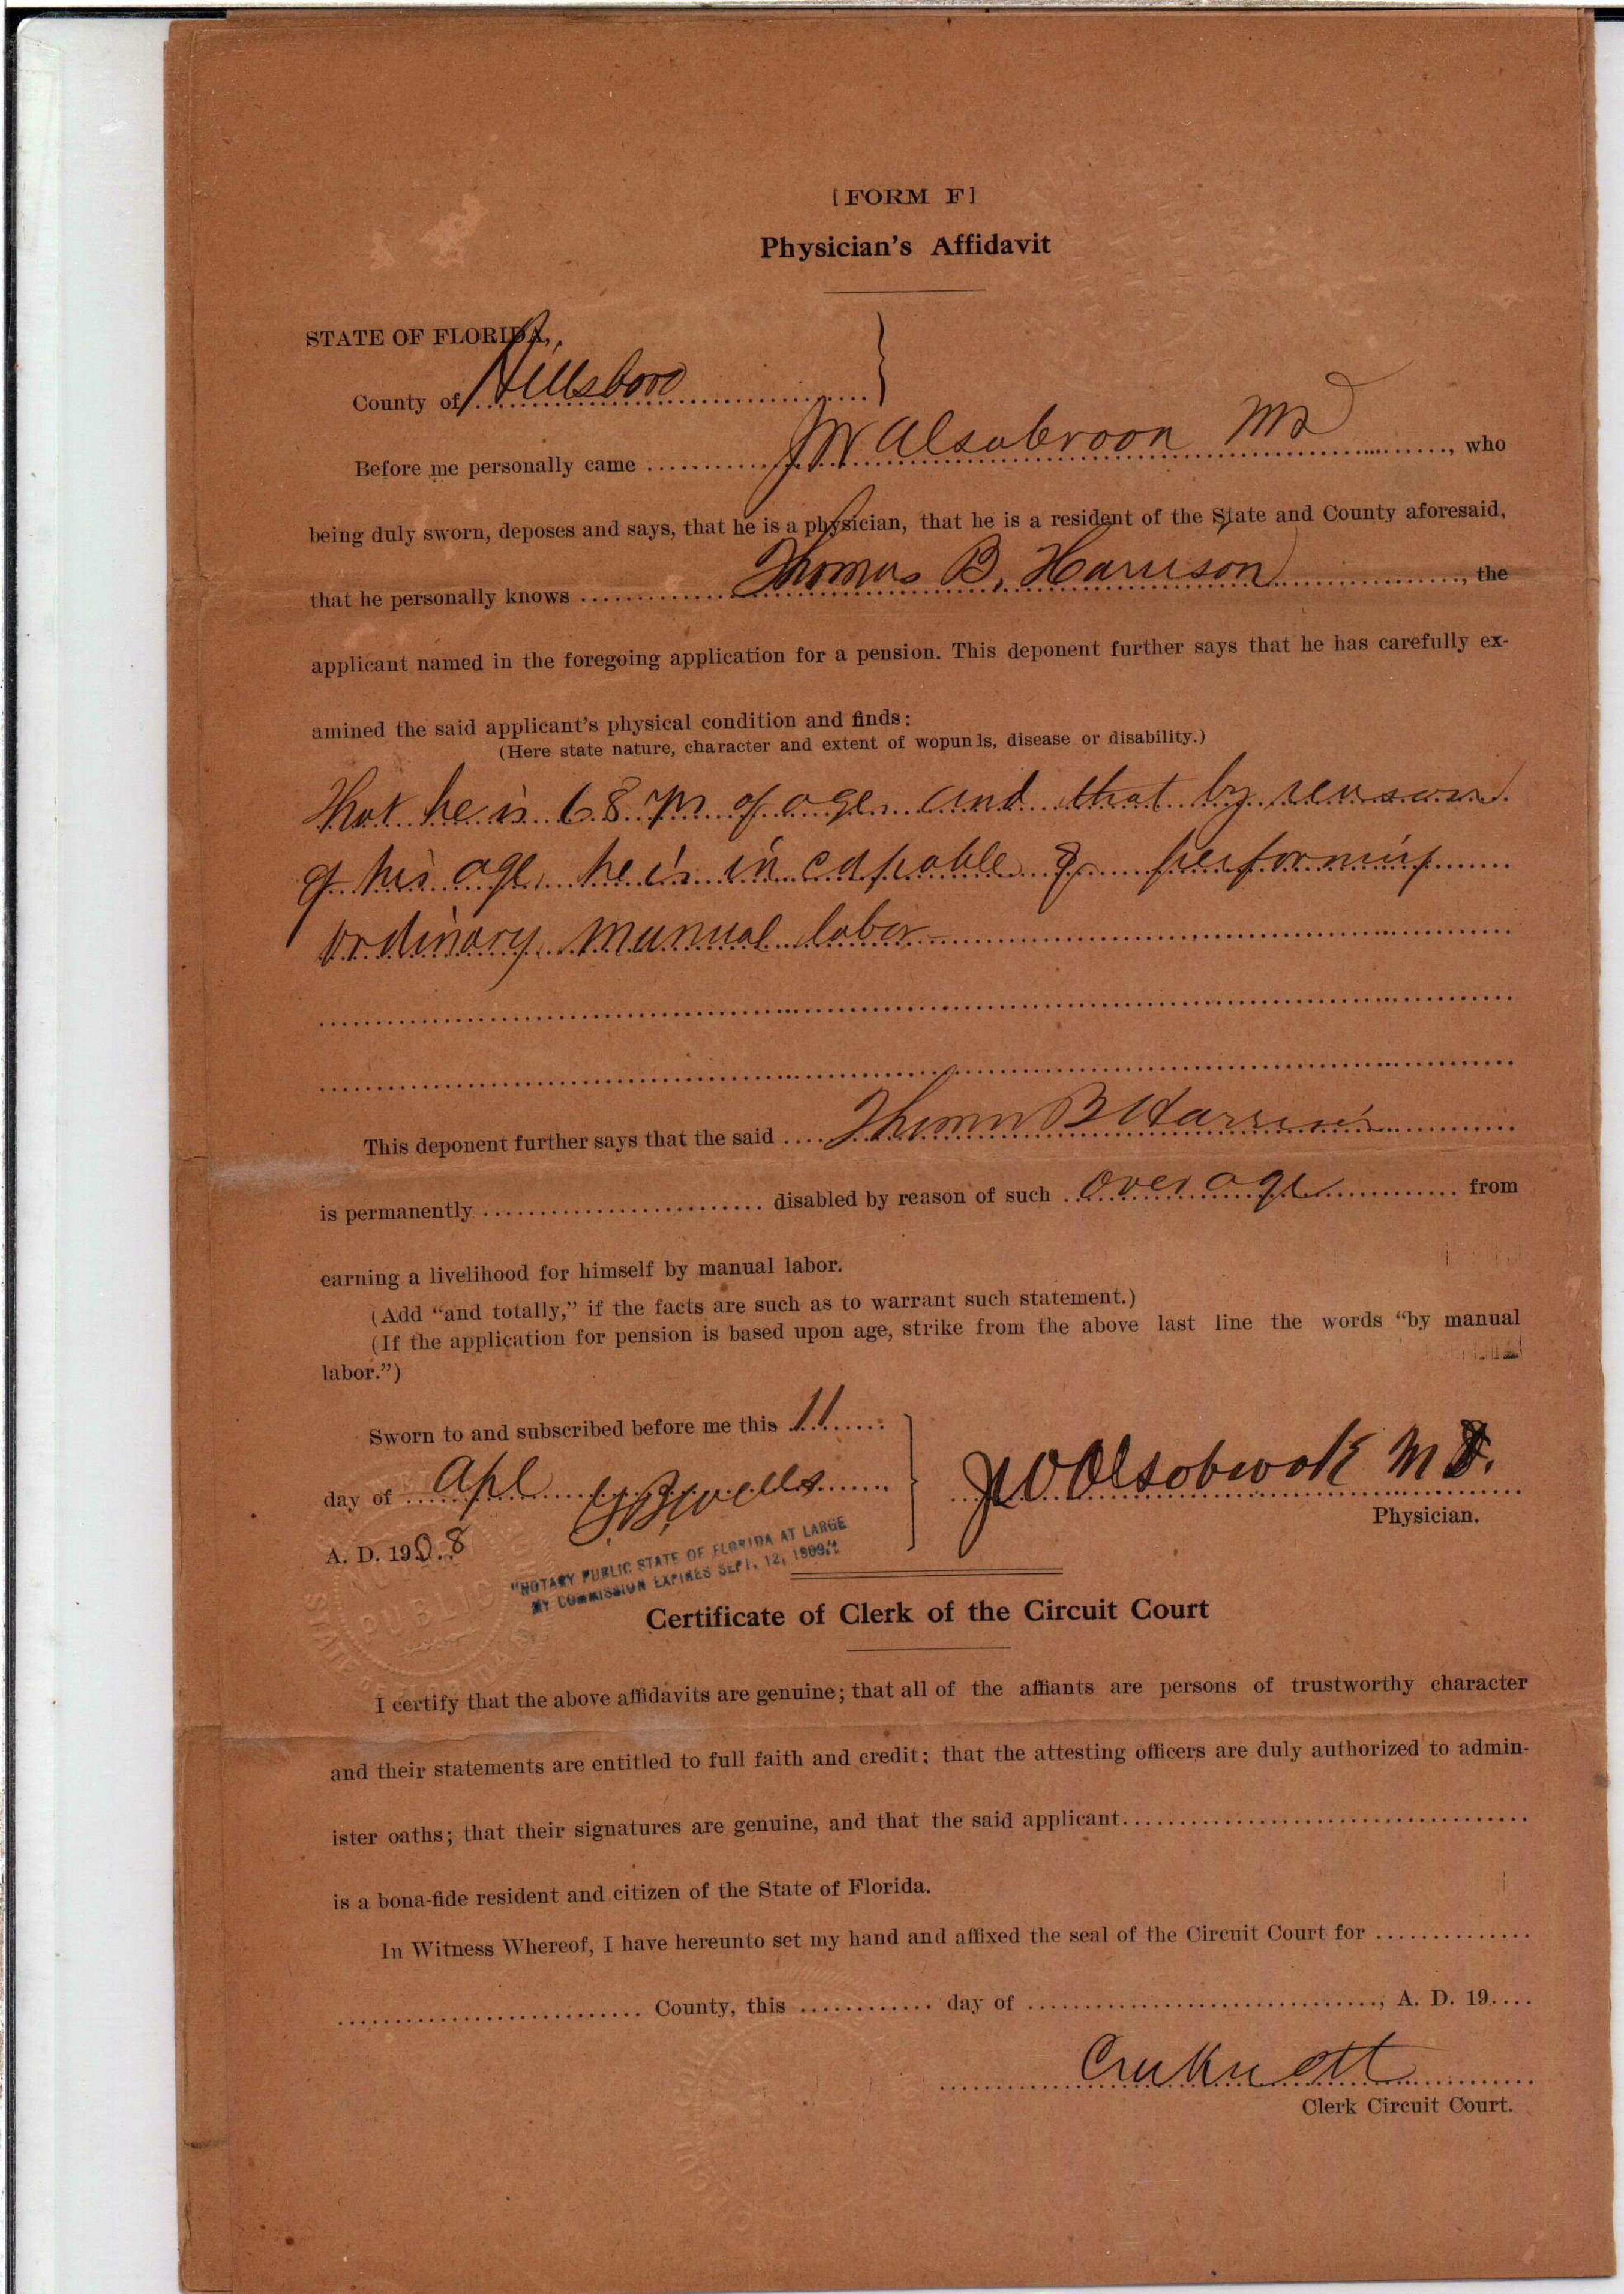 [FORM F]
Physician's Affidavit
STATE OF FLORIDA,
County of Hillsboro
Before me personally came J W Alsobroon MD, who
being duly sworn, deposes and says, that he is a physician, that he is a resident of the State and County aforesaid,
that he personally knows Thomas B. Harrison, the
applicant named in the foregoing application for a pension. This deponent further says that he has carefully ex-
amined the said applicant's physical condition and finds:
(Here state nature, character and extent of wopunls, disease or disability.)
That he is 68 yrs of age and that by reason
of his age he is incapable of performing
ordinary manual labor
This deponent further says that the said Thomas B Harrison
is permanently disabled by reason of such over age from
earning a livelihood for himself by manual labor.
(Add "and totally," if the facts are such as to warrant such statement.)
(If the application for pension is based upon age, strike from the above last line the words "by manual
labor.")
Sworn to and subscribed before me this 11
day of Apl
A. D. 1908
"NOTARY PUBLIC STATE OF FLORIDA AT LARGE
MY COMMISSION EXPIRES SEPT. 12, 1909."
J W Alsobrook M D.
Physician.
Certificate of Clerk of the Circuit Court
I certify that the above affidavits are genuine; that all of the affiants are persons of trustworthy character
and their statements are entitled to full faith and credit; that the attesting officers are duly authorized to admin-
ister oaths; that their signatures are genuine, and that the said applicant
is a bona-fide resident and citizen of the State of Florida.
In Witness Whereof, I have hereunto set my hand and affixed the seal of the Circuit Court for
County, this day of , A. D. 19
Clerk Circuit Court.